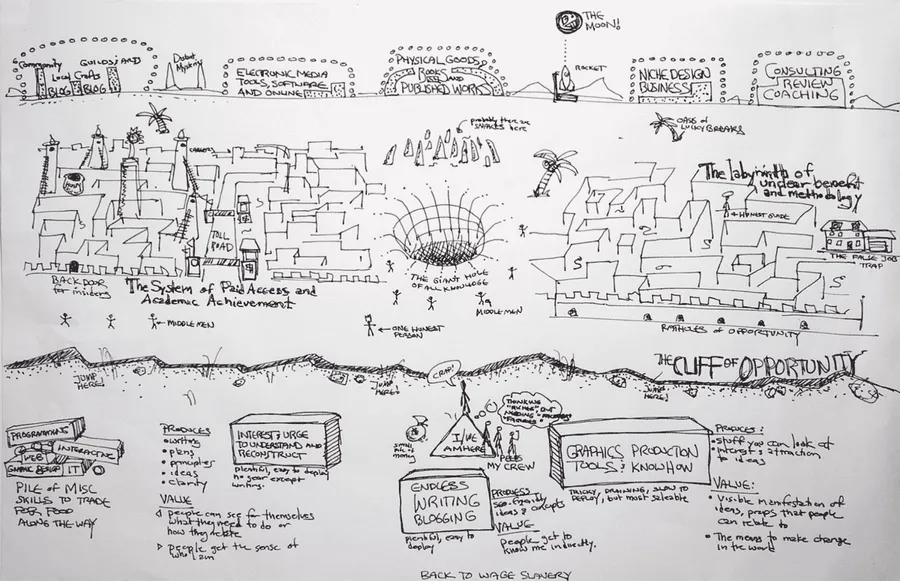 THE
MOON!
ROCKET
Community
GUILDS AND
Local Crafts
BLOG
BLOG
ELECTRONIC MEDIA
TOOLS, SOFTWARE
AND ONLINE
PHYSICAL GOODS
BOOKS AND
PUBLISHED WORKS
NICHE DESIGN
BUSINESS
CONSULTING
REVIEW
COACHING
probably there are
SNAKES here
OASIS OF
LUCKY BREAKS
CAREERS
TOLL
ROAD
The labyrinth of
unclear benefit
and methodology
HONEST GUIDE
THE FALSE JOB
TRAP
BACK DOOR
for insiders
The System of Paid Access and
Academic Achievement
THE GIANT HOLE
OF ALL KNOWLEDGE
MIDDLEMEN
MIDDLEMEN
ONE HONEST
PERSON
RATHOLES OF OPPORTUNITY
THE CLIFF OF OPPORTUNITY
JUMP
HERE!
JUMP
HERE!
JUMP
HERE!
CRAP!
PROGRAMMING
WEB
INTERACTIVE
GRAPHIC DESIGN
IT
PILE OF MISC
SKILLS TO TRADE
FOR FOOD
ALONG THE WAY
PRODUCES
• writing
• plans
• principles
• ideas
• clarity
VALUE
people can see for themselves
what they need to do or
how they relate
people get the sense of
who I am
INTEREST & URGE
TO UNDERSTAND AND
RECONSTRUCT
plentiful, easy to deploy
no gear except
writing.
small
bit of
money
I/WE
AM HERE
PEEPS
MY CREW
ENDLESS
WRITING
BLOGGING
plentiful, easy to
deploy
PRODUCES
ideas & concepts
VALUE
people get to
know me indirectly.
GRAPHICS PRODUCTION
TOOLS & KNOWHOW
TRICKY, DRAINING, SLOW TO
DEPLOY, but most saleable
PRODUCES:
• stuff you can look at
• interest & attraction
to ideas
VALUE:
• Visible manifestation of
ideas, props that people
can relate to
• The means to make change
in the world
BACK TO WAGE SLAVERY